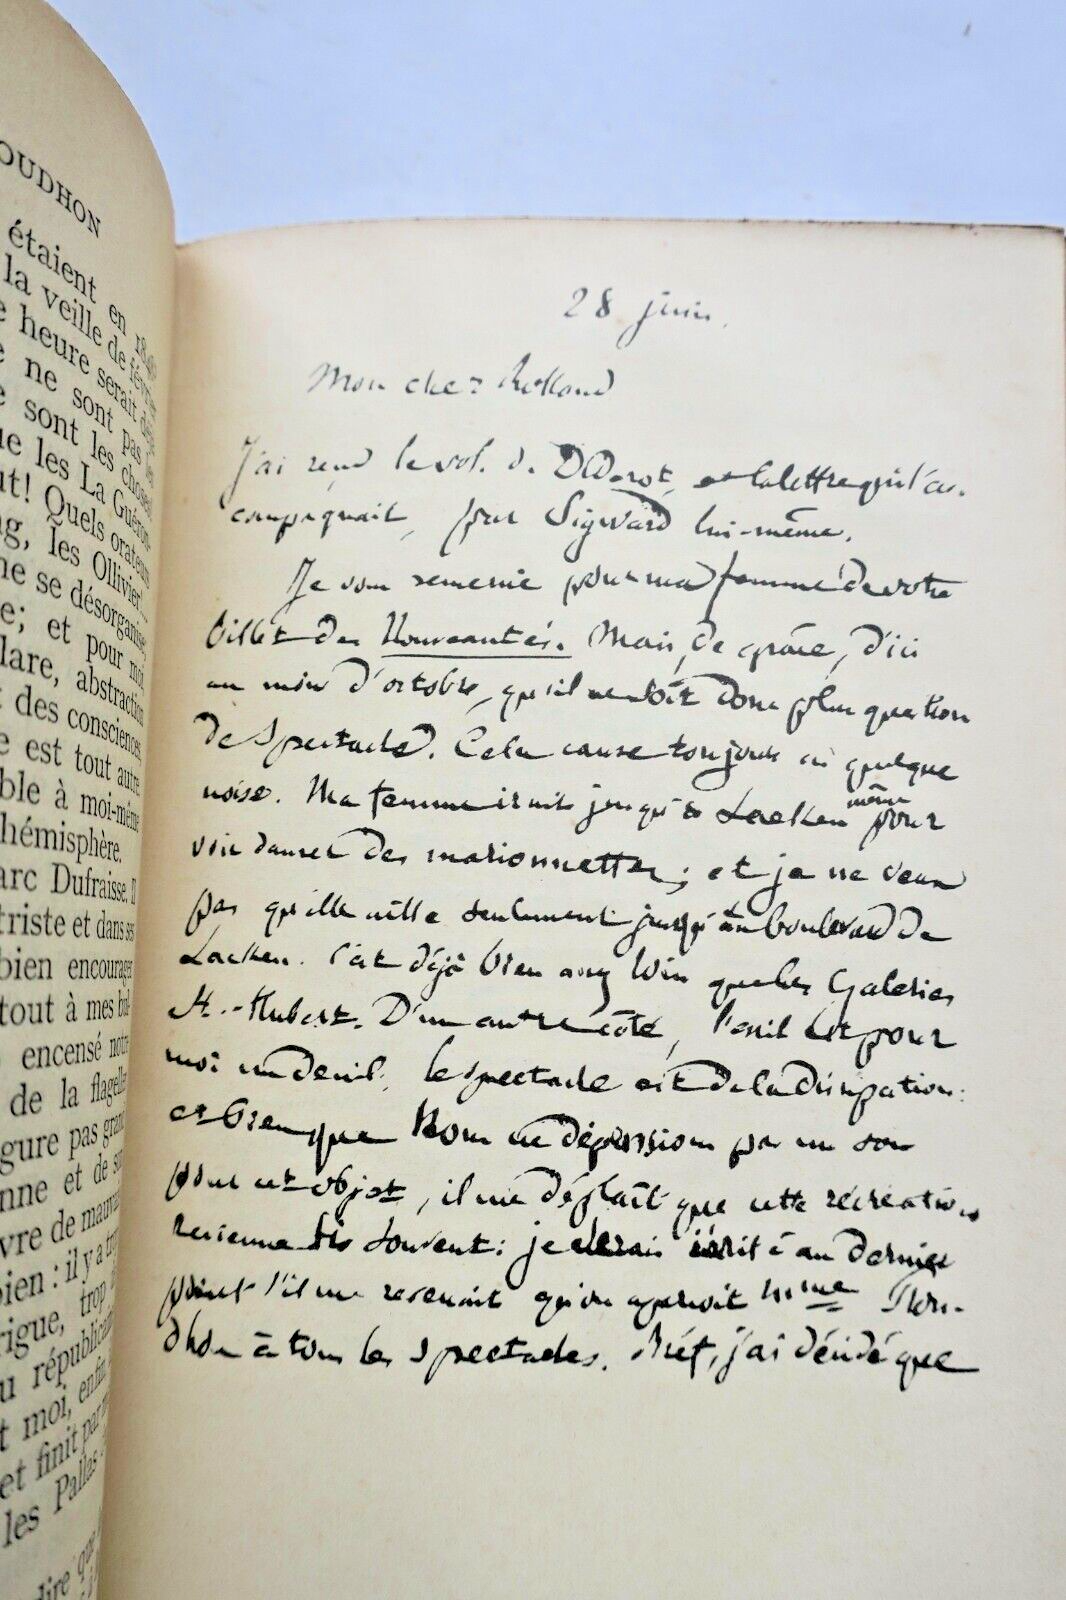 OUDHON
étaient en 184
la veille de févr
heure serait de
ne sont pas le
sont les choses
ue les La Guéron-
ut! Quels orateurs
g, les Ollivier!...
ne se désorganise,
e; et pour moi,
lare, abstraction
des consciences,
e est tout autre
ble à moi-même
hémisphère.
arc Dufraisse. Il
triste et dans ses
bien encourager
tout à mes bul-
encensé notre
de la flagelle
gure pas grand
nne et de su
vre de mauvai
ien : il y a trop
rigue, trop d
u républicain
t moi, enfin
et finit par m
les Pallas
dire que
28 juin.
Mon cher Rolland
J'ai rend le vol. de Diderot, et la lettre qui l'ac-
compagnait, par Sigward lui-même.
Je vous remercie pour ma femme de votre
billet des Nouveautés. Mais, de grâce, d'ici
au mois d'octobre, qu'il ne soit donc plus question
de spectacle. Cela cause toujours ici quelque
noise. Ma femme irait jusqu'à Laeken même pour
voir danser des marionnettes; et je ne veux
pas qu'elle aille seulement jusqu'au boulevard de
Laeken. C'est déjà bien que les Galeries
St.-Hubert. D'un autre côté, l'exil est pour
moi un deuil, le spectacle est de la dissipation:
et bien que nous ne dépensions pas un sou
pour cet objet, il me déplaît que cette récréation
revienne très souvent: je serais irrité au dernier
point s'il me revenait qu'on aperçoit Mme Prou-
dhon à tous les spectacles. Bref, j'ai décidé que